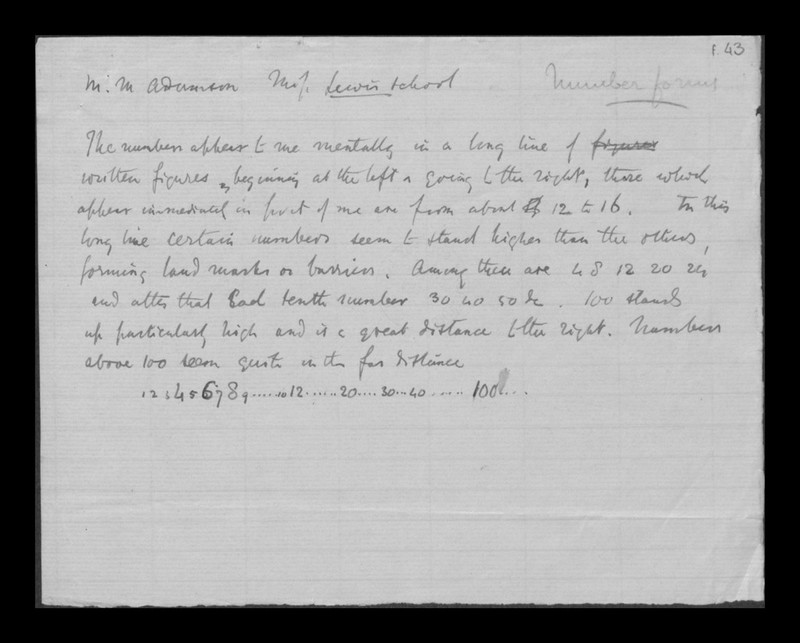 f. 43
M. M Adamson Miss Lewis School Number forms
The numbers appear to me mentally in a long line of figures
written figures, beginning at the left & going to the right, those which
appear immediately in front of me are from about 12 to 16. In this
long line certain numbers seem to stand higher than the others,
forming land marks or barriers. Among these are 4 8 12 20 24
and after that Each tenth number 30 40 50 &c. 100 stands
up particularly high and is a great distance to the right. Numbers
above 100 seem quite in the far distance
1 2 3 4 5 6 7 8 9 ..... 10 12 ...... 20 .... 30 ... 40 ...... 100 ...